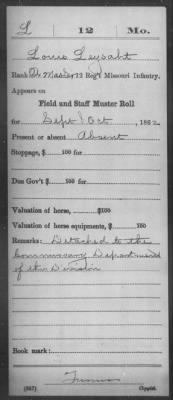 L 12 Mo.
Louis
Rank Missouri Infantry.
Appears on
Field and Staff Muster Roll
for Sept & Oct, 1862.
Present or absent Absent
Stoppage, $ 100 for
Due Gov't $ 100 for
Valuation of horse, $ 100
Valuation of horse equipments, $ 100
Remarks: Detached to the
Commissary Department
of this Division
Book mark:
Copyist.